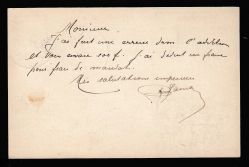 Monsieur
J'ai fait une erreur dans l'addition
et vous envoie 100 f. J'ai déduit un franc
pour frais de mandat.
Mes salutations